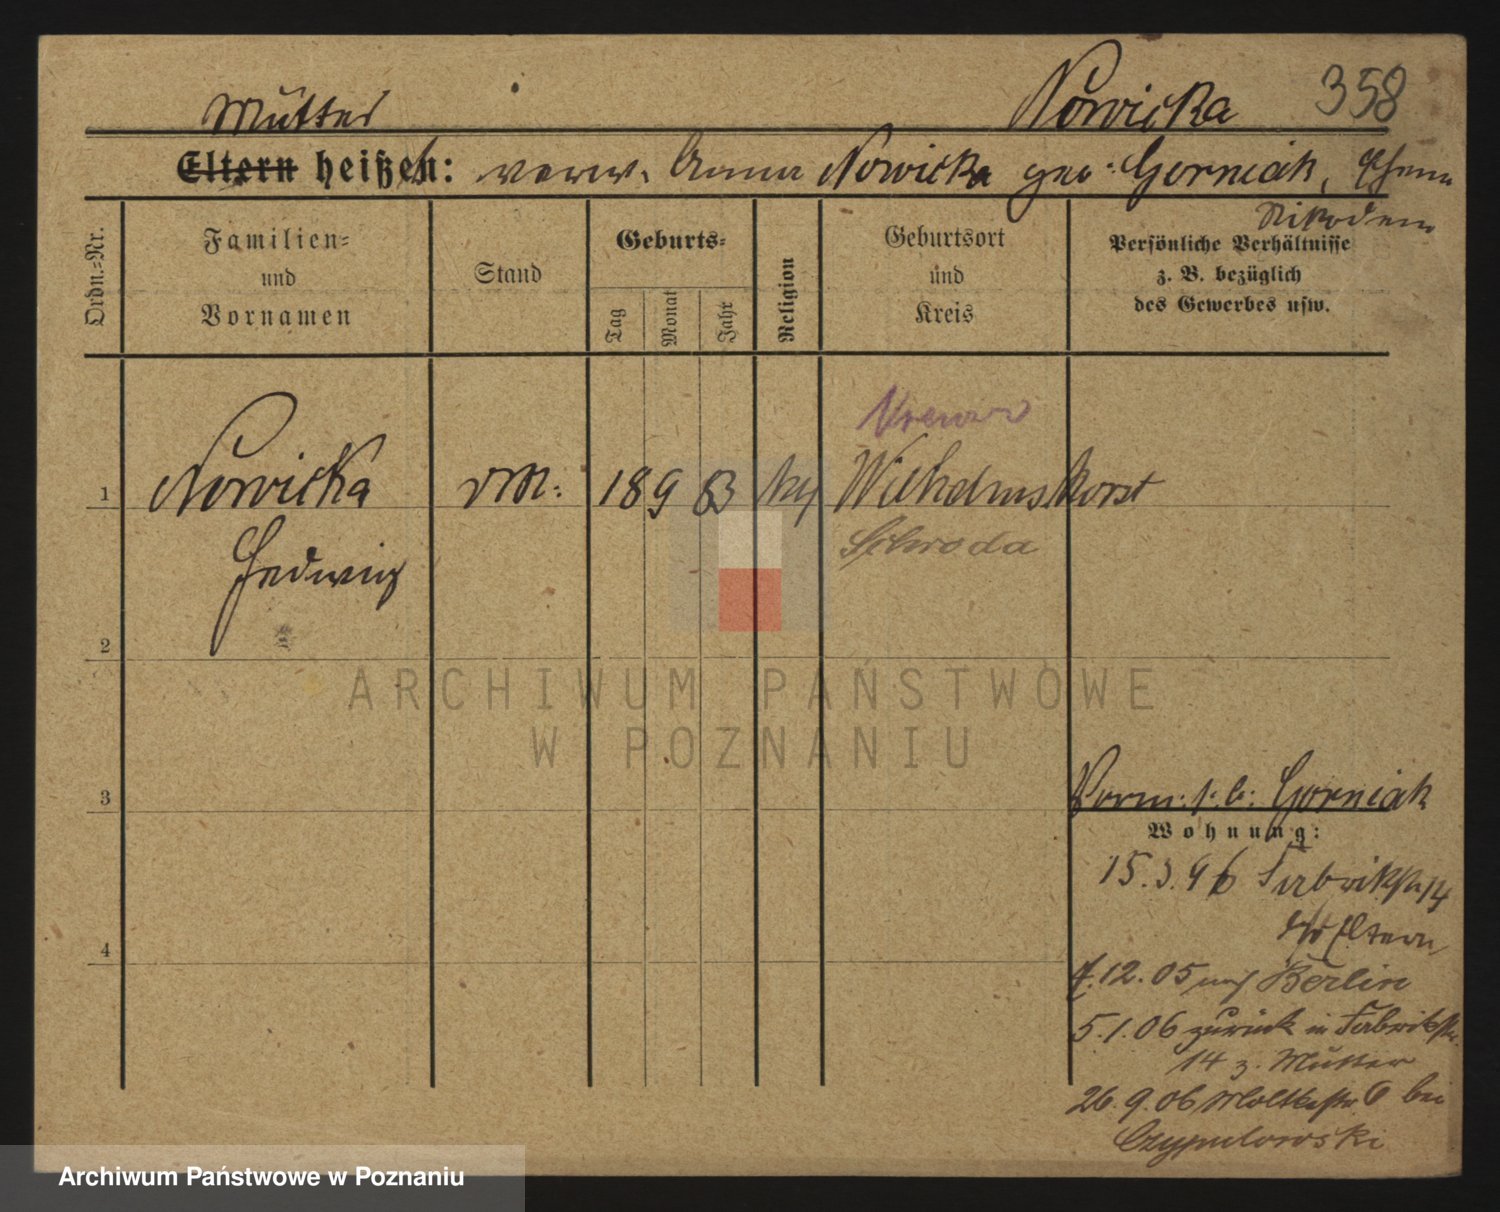 Nowicka 358
Mutter
Eltern heißen: verw. Anna Nowicka geb. Gorniak, Ehem
Nikodem
Ordn.=Nr.
Familien=
und
Vornamen
Stand
Geburts=
Tag
Monat
Jahr
Religion
Geburtsort
und
Kreis
Persönliche Verhältnisse
z. B. bezüglich
des Gewerbes usw.
1 Nowicka 189 Wilhelmshorst
Hedwig
Schroda
2
3
Vorm. s. b. Gorniak
Wohnung:
15.3.96 Fabrikstr 14
Eltern
4
.12.05 nach Berlin
5.1.06 zurück in Fabrikstr.
14 z. Mutter
26.9.06 Moltkestr 6 bei
Czypulowski
ARCHIWUM PAŃSTWOWE
W POZNANIU
Archiwum Państwowe w Poznaniu